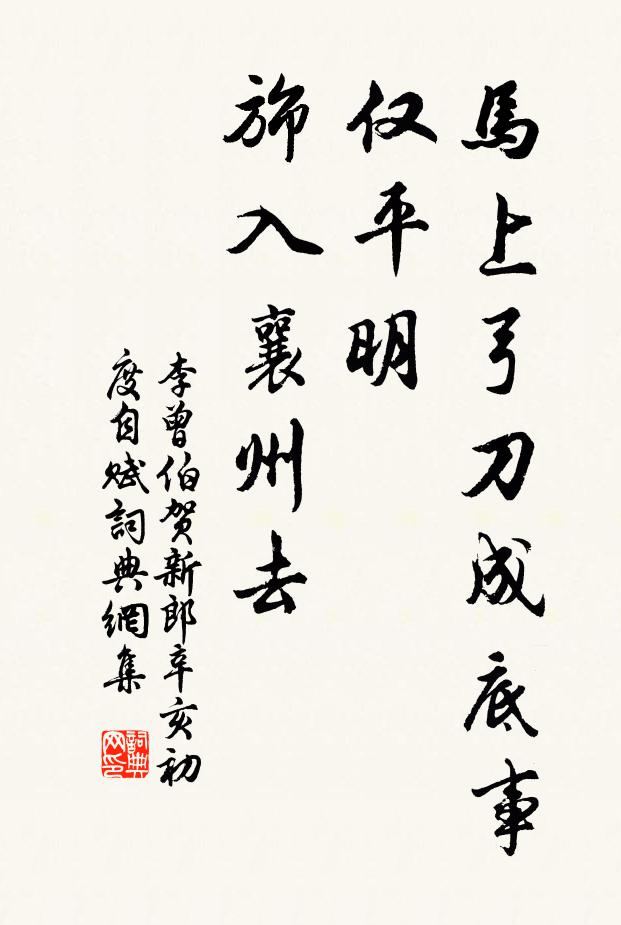 馬上弓刀成底事
仅平明
旆入襄州去
李曾伯贺新郎辛亥初
度自赋詞典網集
詞典网印